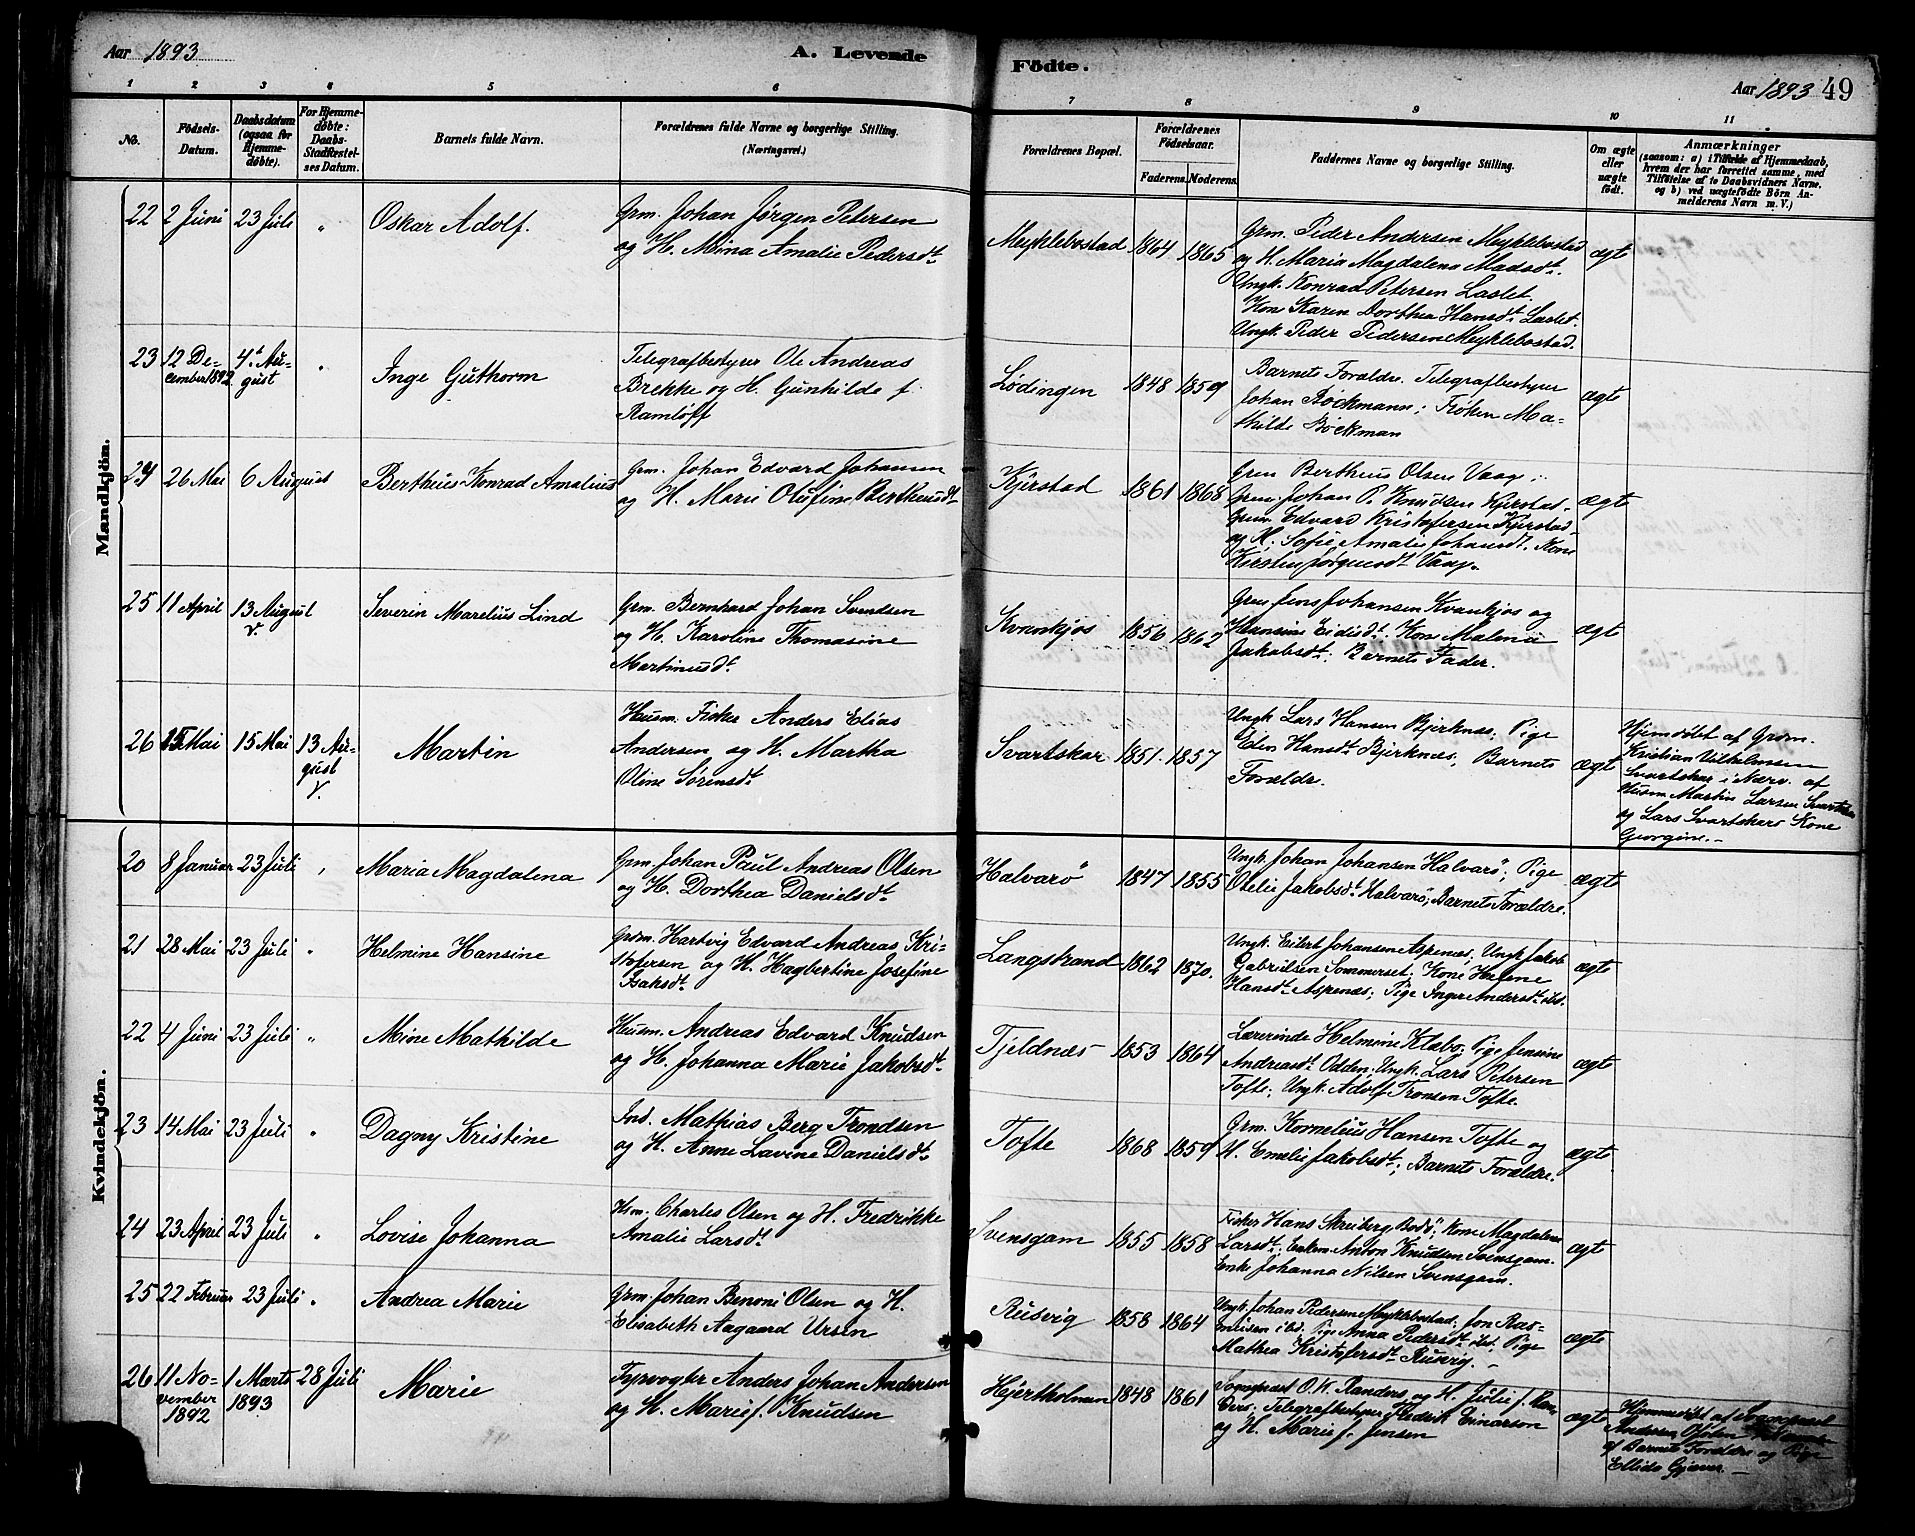 Aar 1893
A. Levende
Födte.
Aar 1893 49
1 2 3 4 5 6 7 8 9 10 11
No.
Födsels-
Datum.
Daabsdatum
(ogsaa for
Hjemme-
döbte).
For Hjemme-
döbte:
Daabs-
Stadfæstel-
ses Datum.
Barnets fulde Navn.
Forældrenes fulde Navne og borgerlige Stilling.
(Næringsvei.)
Forældrenes Bopæl.
Forældrenes
Födselsaar.
Faderens. Moderens.
Faddernes Navne og borgerlige Stilling.
Om ægte
eller
uægte
födt.
Anmærkninger
(saasom: a) i Tilfælde af Hjemmedaab,
hvem der har forrettet samme, med
Tilföielse af to Daabsvidners Navne,
og b) ved uægtefödte Börn An-
melderens Navn m. V.)
Mandkjön.
22 2 Juni 23 Juli " Oskar Adolf.
Grm. Johan Jørgen Petersen
og H. Mina Amalie Pedersdt.
Meyklebostad 1864 1865
Grm. Peder Andersen Meyklebostad
og H. Maria Magdalena Madsdt.
Ungk. Konrad Petersen Laslet.
Kone Karen Dorthea Hansdt. Laslet.
Ungk. Peder Pedersen Meyklebostad.
ægte
23 12 De-
cember 1892 4de Au-
gust " Inge Guthorm
Telegrafbestyrer Ole Andreas
Brekke og H. Gunhilde f.
Ramløff
Lødingen 1848 1859
Barnets Forældre. Telegrafbestyrer
Johan Bøckmann; Frøken Ma-
thilde Bøckman
ægte
24 26 Mai 6 August Bertheus Konrad Amalius
Grm. Johan Edvard Johansen
og H. Marie Olufine Bertheusdt.
Kjerstad 1861 1868
Grm Bertheus Olsen Vaag;
Grm. Johan P. Knudsen Kjerstad.
Grm. Edvard Kristofersen Kjerstad
og H. Sofie Amalie Johansdt. Kone
Kirsten Jørgensdt Vaag.
ægte
25 11 April 13 August
V. Severin Marelius Lind
Grm. Bernhard Johan Svendsen
og H. Karoline Thomasine
Martinusdt.
Kvankjos 1856 1862
Grm Jens Johansen Kvankjos og
Hansine Eidisdt. Kone Malena
Jakobsdt. Barnets Fader.
ægte
26 15 Mai 15 Mai 13 Au-
gust
V. Martin
Husm. Fisker Anders Elias
Andersen og H. Martha
Oline Sørensdt.
Svartskar 1851. 1857
Ungk Lars Hansen Bjerknæs; Pige
Eden Hansdt Bjerknæs; Barnets
Forældre.
ægte
Hjemdøbt af Grdm.
Kristian Vilhelmsen
Svartskar i Nærv. af
Husm Martin Larsen
og Lars Svartskars Kone
Georgine.-
Kvindekjön.
20 8 Januar 23 Juli " Maria Magdalena
Grm. Johan Paul Andreas Olsen
og H. Dorthea Danielsdt.
Halvarö 1847 1855
Ungk. Johan Johansen Halvarö; Pige
Otelie Jakobsdt. Halvarö; Barnets Forældre.
ægte
21 28 Mai 23 Juli " Helmine Hansine
Grdm. Hartvig Edvard Andreas Kri-
stofersen og H. Hagbertine Josefine
Isaksdt.
Langstrand 1862 1870.
Ungk. Eilert Johansen Aspenæs; Ungk. Jakob
Gabrielsen Sommerset; Kone Helene
Hansdt. Aspenæs; Pige Inger Andersdt. ibd.
ægte
22 4 Juni 23 Juli " Mine Mathilde
Husm. Andreas Edvard Knudsen
og H. Johanna Marie Jakobsdt.
Tjeldnæs 1853 1864
Lærerinde Helmine Klæbo; Pige Jensine
Andreasdt. Odden; Ungk. Lars Petersen
Tofte; Ungk. Adolf Tronsen Tofte.
ægte
23 14 Mai 23 Juli " Dagny Kristine
Ind. Mathias Berg Trondsen
og H. Anne Lavine Danielsdt.
Tofte 1868 1859
Grm. Kornelius Hansen Tofte og
H. Emelie Jakobsdt.; Barnets Forældre.
ægte
24 23 April 23 Juli " Lovise Johanna
Hsm. Charles Olsen og H. Fredrikke
Amalie Larsdt.
Svensgam 1855 1858
Fisker Hans Skreiberg, Bodö; Kone Magdalena
Larsdt.; Enkem. Anton Knudsen Svensgam.
Enke Johanna Nilsen Svensgam.
ægte
25 22 Februar 23 Juli " Andrea Marie
Grm. Johan Benoni Olsen og H.
Elisabeth Aagaard Ursin
Rusvig 1858 1864
Ungk. Johan Pedersen Meyklebostad; Jon Ras-
musen ibd. Pige Anna Pedersdt. ibd. Pige
Mathea Kristofersdt. Rusvig.-
ægte
26 11 No-
vember
1892 1 Marts
1893 28 Juli Marie
Fyrvogter Anders Johan Andersen
og H. Marie f. Knudsen
Hjertholmen 1848 1861
Sogneprest O. K. Randers og H. Julie f.
Telegrafbestyrer Fredrik Einarson
og H. Marie f. Jensen
ægte
Hjemmedøbt af Sogneprest
Andersen Ofoten
af Barnets Forældre og Pige
Ellida Gjæver.-